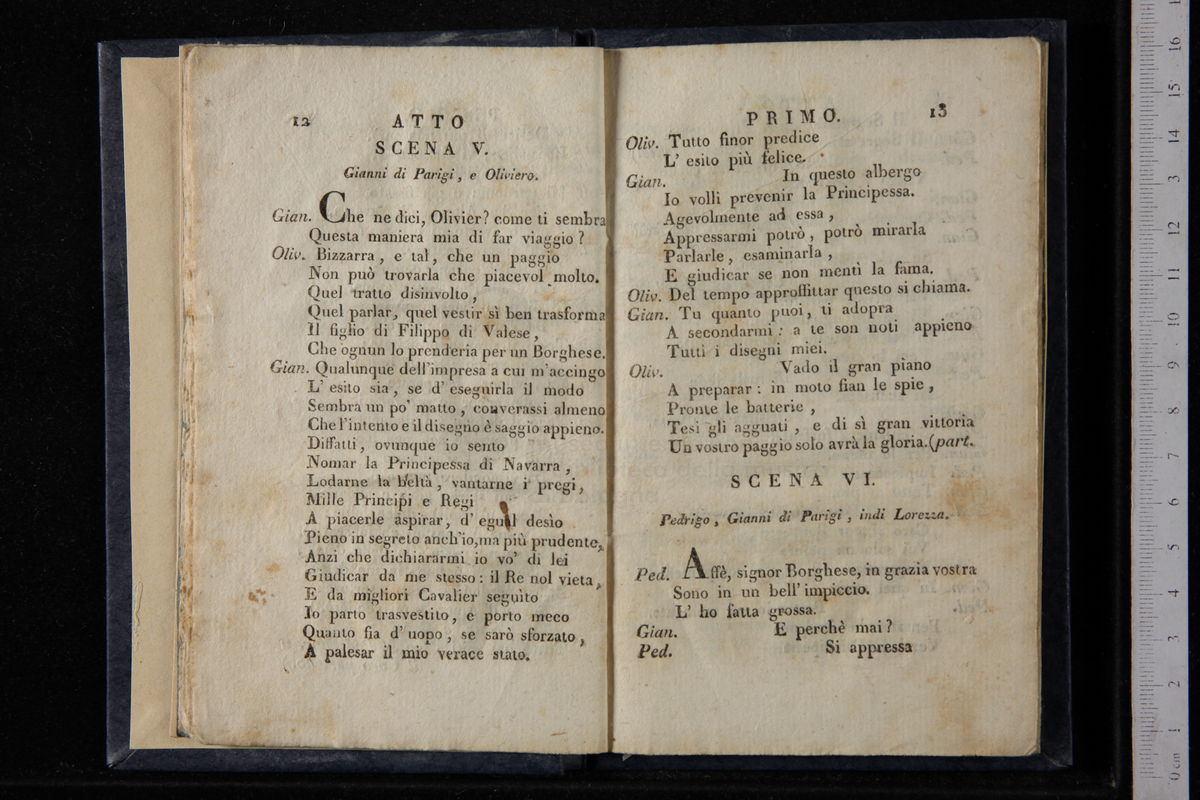 12 ATTO
SCENA V.
Gianni di Parigi, e Oliviero.
Gian. Che ne dici, Olivier? come ti sembra
Questa maniera mia di far viaggio?
Oliv. Bizzarra, e tal, che un paggio
Non può trovarla che piacevol molto.
Quel tratto disinvolto,
Quel parlar, quel vestir sì ben trasforma
Il figlio di Filippo di Valese,
Che ognun lo prenderia per un Borghese.
Gian. Qualunque dell'impresa a cui m'accingo
L' esito sia, se d' eseguirla il modo
Sembra un po' matto, converassi almeno
Che l'intento e il disegno è saggio appieno.
Diffatti, ovunque io sento
Nomar la Principessa di Navarra,
Lodarne la beltà, vantarne i pregi,
Mille Principi e Regi
A piacerle aspirar, d' egual desìo
Pieno in segreto anch'io, ma più prudente,
Anzi che dichiararmi io vo' di lei
Giudicar da me stesso: il Re nol vieta,
E da migliori Cavalier seguìto
Io parto trasvestito, e porto meco
Quanto fia d' uopo, se sarò sforzato,
A palesar il mio verace stato.
PRIMO. 13
Oliv. Tutto finor predice
L' esito più felice.
Gian. In questo albergo
Io volli prevenir la Principessa.
Agevolmente ad essa,
Appressarmi potrò, potrò mirarla
Parlarle, esaminarla,
E giudicar se non mentì la fama.
Oliv. Del tempo approffittar questo si chiama.
Gian. Tu quanto puoi, ti adopra
A secondarmi: a te son noti appieno
Tutti i disegni miei.
Oliv. Vado il gran piano
A preparar: in moto fian le spie,
Pronte le batterie,
Tesi gli agguati, e di sì gran vittoria
Un vostro paggio solo avrà la gloria. (part.
SCENA VI.
Pedrigo, Gianni di Parigi, indi Lorezza.
Ped. Affè, signor Borghese, in grazia vostra
Sono in un bell' impiccio.
L' ho fatta grossa.
Gian. E perchè mai?
Ped. Si appressa